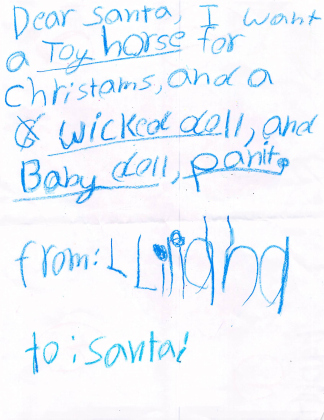 Dear Santa, I want
a Toy horse for
christams, and a
wicked doll, and
Baby doll, panit.
from: L Lilidha
to: santa!